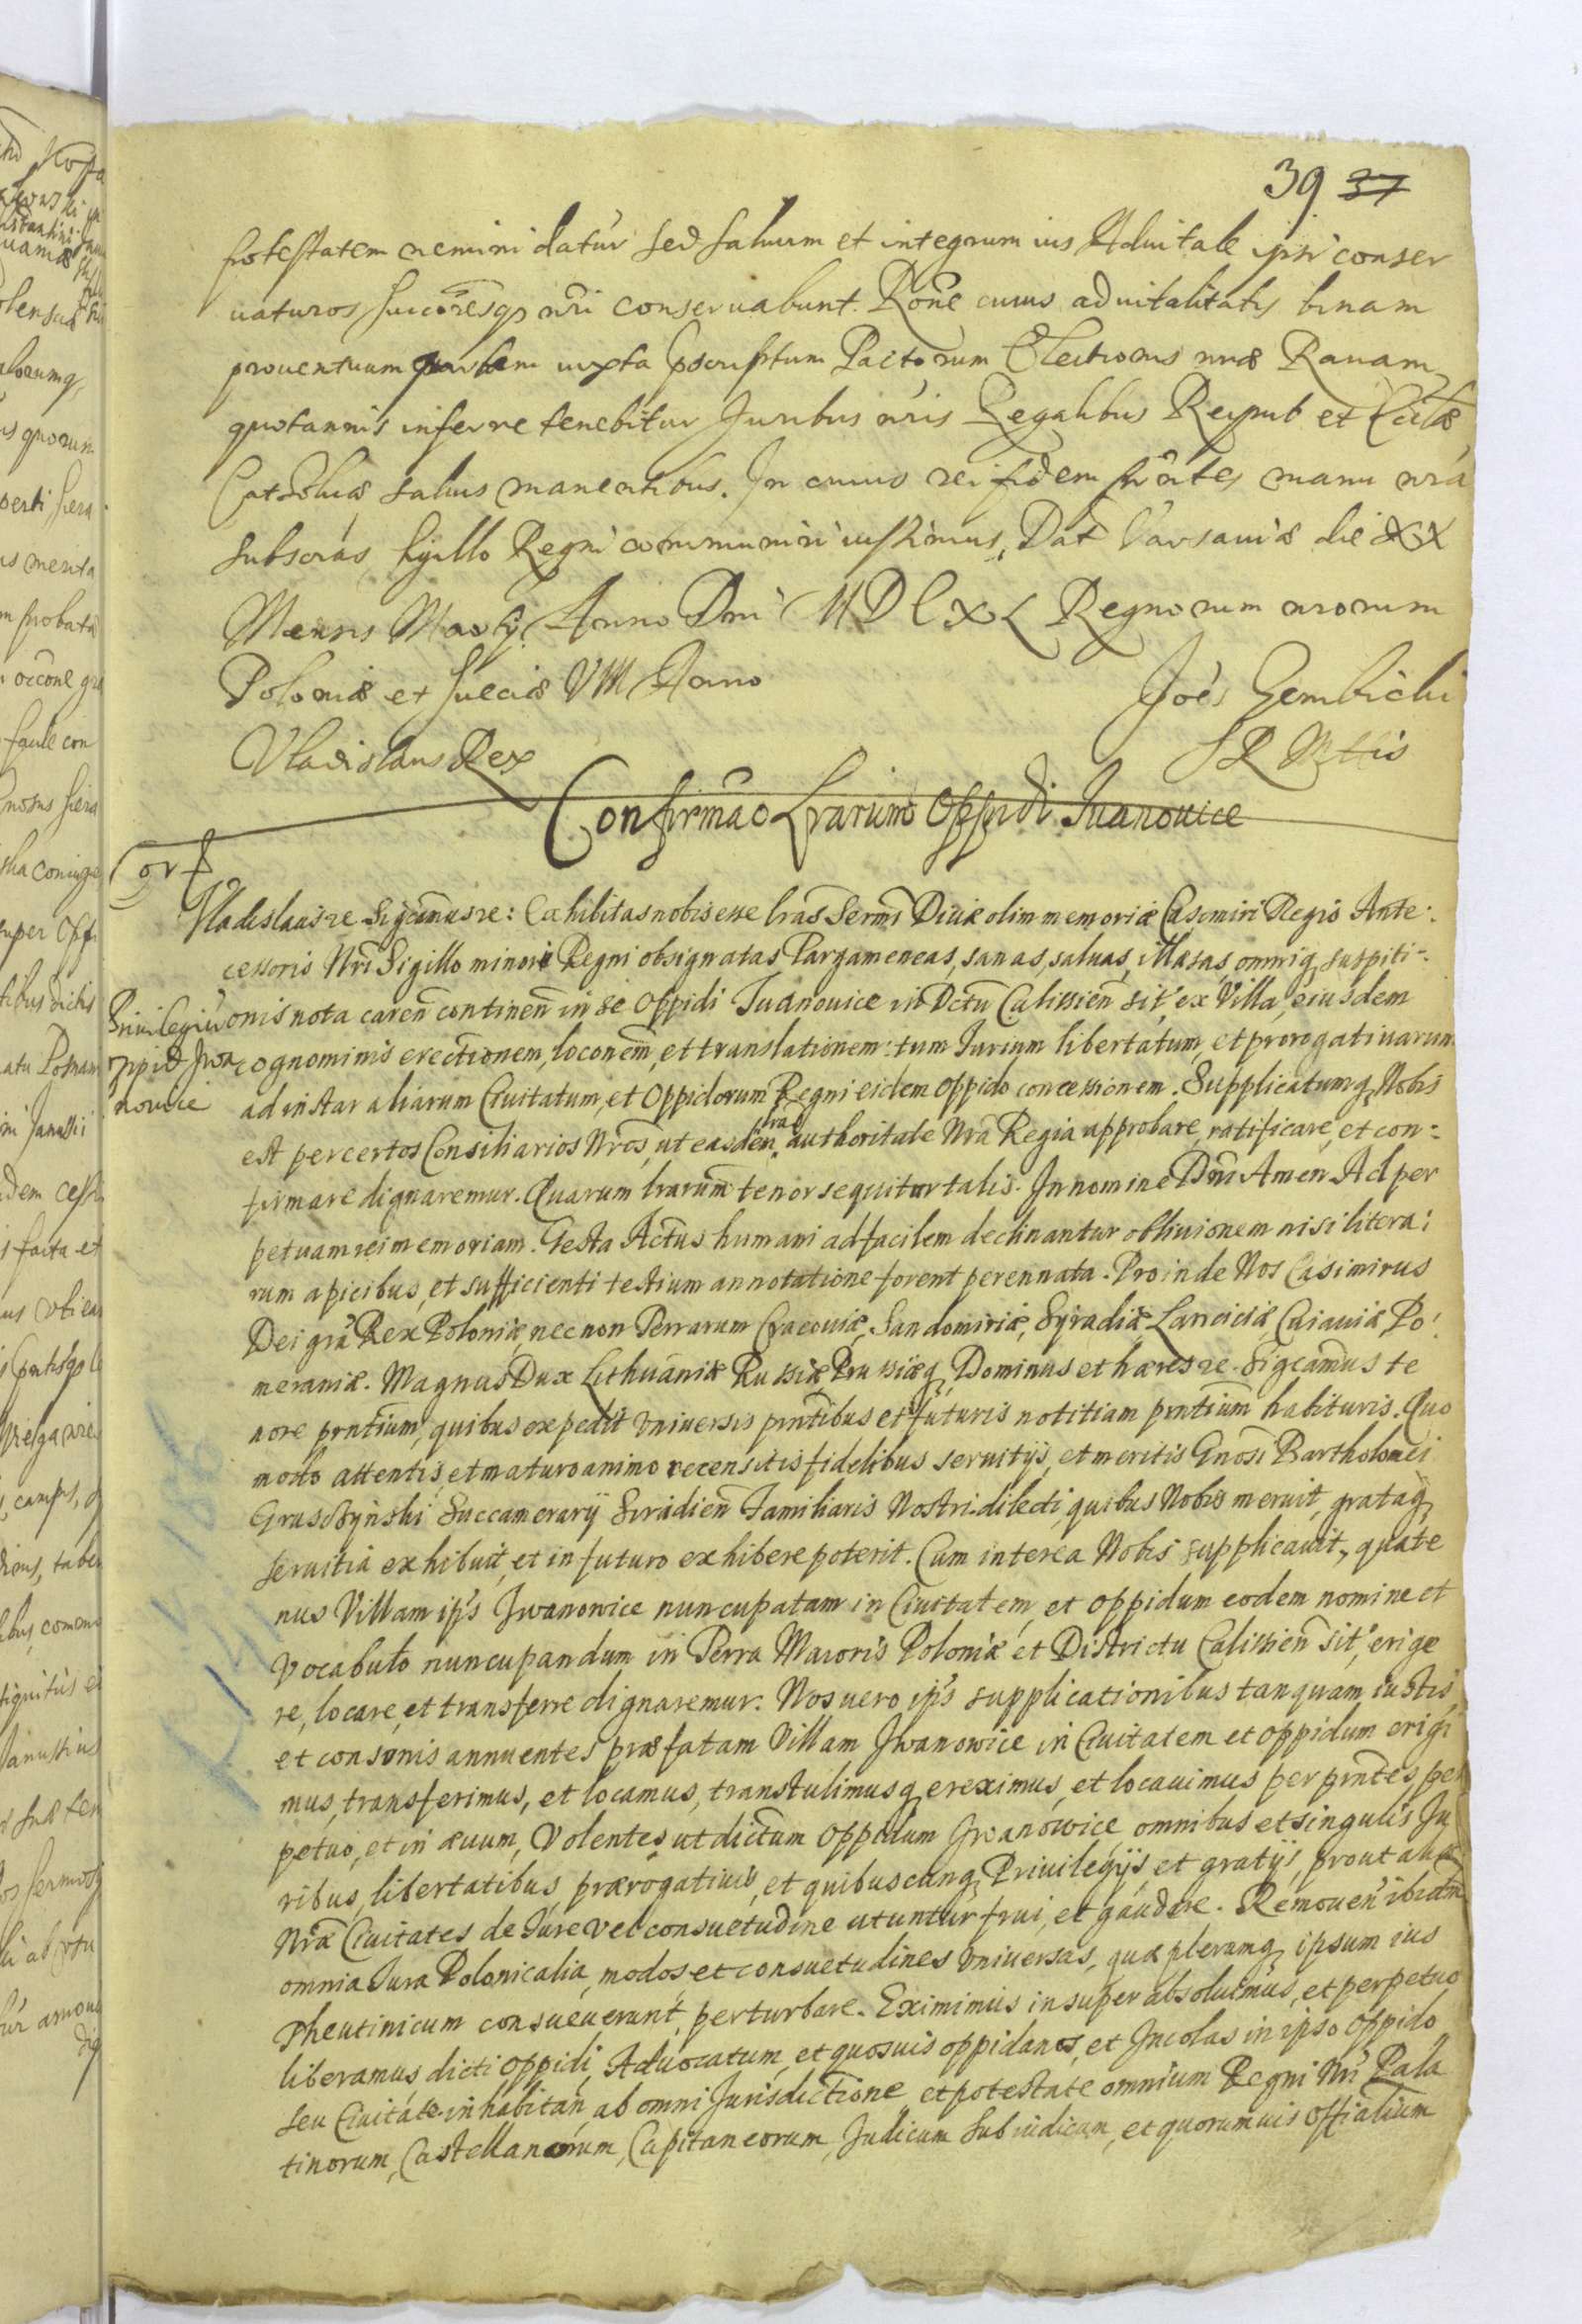 39 37
potestatem nemini datur sed saluum et integrum ius Aduitale ipsi conser
uaturos Succoresqs nri conseruabunt. Rone cuius aduitalitatis binam
prouentuum partem iuxta pscriptum Pactorum Electionis nræ Rauam
quotannis inferre tenebitur Juribus nris Regalibus Reipub et Ecclæ
Catholicæ saluis manentibus. In cuius rei fidem pntes manu nra
subscras sigillo Regni communiri iussimus. Dat Varsauiæ die XX
Mensis Martij Anno Dni MDCXL Regnorum nrorum
Poloniæ et Sueciæ VIII Anno
Joes Gembicki
Vladislaus Rex
S R Mttis
Confirmao Lrarum Oppidi Iuanouice
Cor
Vladislaus re Sigcamus re: Exhibitas nobis esse lras Sermi Diuæ olim memoriæ Casimiri Regis Ante:
cessoris Nri Sigillo minori Regni obsignatas Pargameneas, sanas, saluas, illæsas omniq suspiti-:
Priuilegiu
oppid Jwa
nowice
onis nota caren continen in se Oppidi Iuanouice in Dctu Calissien sit, ex Villa eiusdem
cognominis erectionem, loconem, et translationem: tum Iurium libertatum, et prorogatiuarum
ad instar aliarum Ciuitatum, et Oppidorum Regni eidem Oppido concessionem. Supplicatumq Nobis
est per certos Consiliarios Nros, ut easdem lras authoritate Nra Regia approbare, ratificare, et con:
firmare dignaremur. Quarum lrarum tenor sequitur talis. In nomine Dni Amen Ad per
petuam rei memoriam. Gesta Actus humani ad facilem declinantur obliuionem nisi litera:
rum apicibus, et sufficienti testium annotatione forent perennata. Proinde Nos Casimirus
Dei gra Rex Poloniæ, nec non Terrarum Cracouiæ, Sandomiriæ, Syradiæ Lanciciæ, Cuiauiæ, Po:
meraniæ. Magnus Dux Lithuaniæ Russiæ, Prussiæq Dominus et hæres re. Sigcamus te
nore prntium, quibus expedit vniuersis prntibus et futuris notitiam prntium habituris. Quo
modo attentis, et maturo animo recensitis fidelibus seruitijs, et meritis Gnosi Bartholomei
Grusczynski Succamerarij Siradien Familiaris Nostri dilecti, quibus Nobis meruit, grataq
seruitia exhibuit, et in futuro exhibere poterit. Cum interea Nobis supplicauit, quate
nus Villam ips Jwanowice nuncupatam in Ciuitatem, et Oppidum eodem nomine et
vocabulo nuncupandum in Terra Maioris Poloniæ et Districtu Calissien sit, erige
re, locare, et transferre dignaremur. Nos uero ips supplicationibus tanquam iustis
et consonis annuentes præfatam Villam Jwanowice in Ciuitatem et Oppidum erigi
mus, transferimus, et locamus, transtulimusq ereximus, et locauimus per prntes per
petuo, et in æuum, Volentes ut dictum Oppidum Jwanowice omnibus et singulis Ju
ribus, libertatibus, prærogatiuis, et quibuscunq Priuilegijs, et gratijs, prout aliæ
Nræ Ciuitates de Iure vel consuetudine utuntur frui, et gaudere. Remouen ibidem
omnia Iura Polonicalia, modos et consuetudines vniuersas, quæ plerumq ipsum ius
Theutinicum consueuerunt, perturbare. Eximimus insuper absoluimus, et perpetuo
liberamus dicti Oppidi, Aduocatum, et quosuis oppidanos, et Incolas in ipso Oppido
seu Ciuitate inhabitan, ab omni Jurisdictione, et potestate omnium Regni Nri Pala
tinorum, Castellanorum, Capitaneorum, Judicum Subiudicum, et quorumuis Offialium